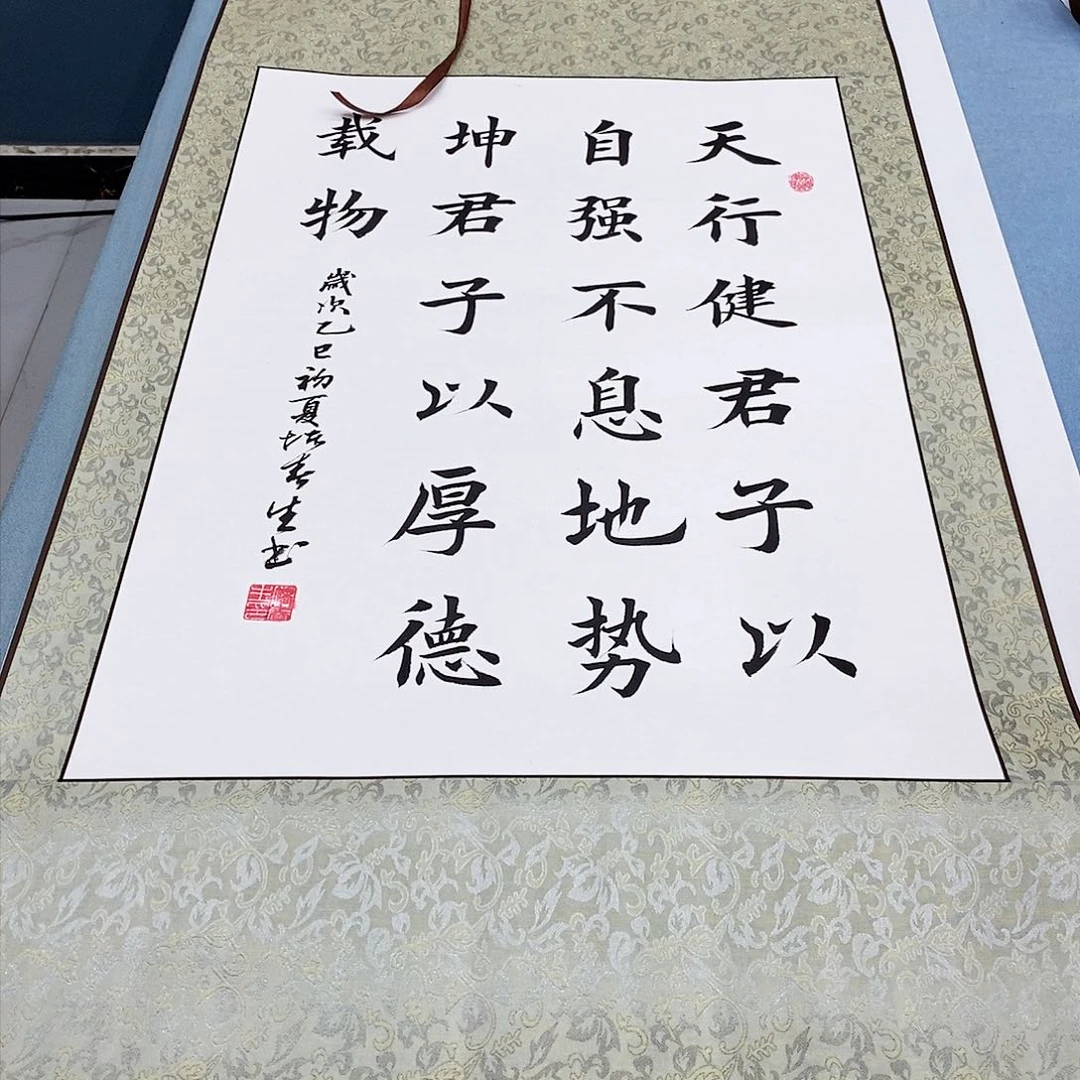 天行健君子以
自强不息地势
坤君子以厚德
载物
歲次乙巳初夏
春生书